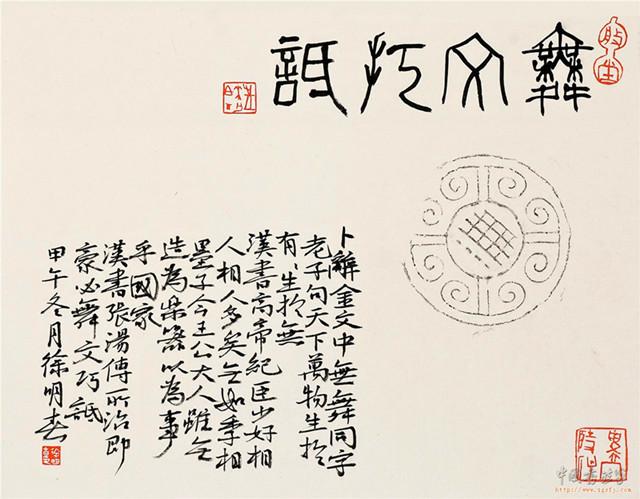 舞文巧詆
卜辭金文中無舞同字
老子句天下萬物生於
有〻生於無
漢書高帝紀臣少好相
人相人多矣無如季相
墨子今王公大人雖無
造為樂器以為事
乎國家
漢書張湯傳所治即
豪必舞文巧詆
甲午冬月徐明